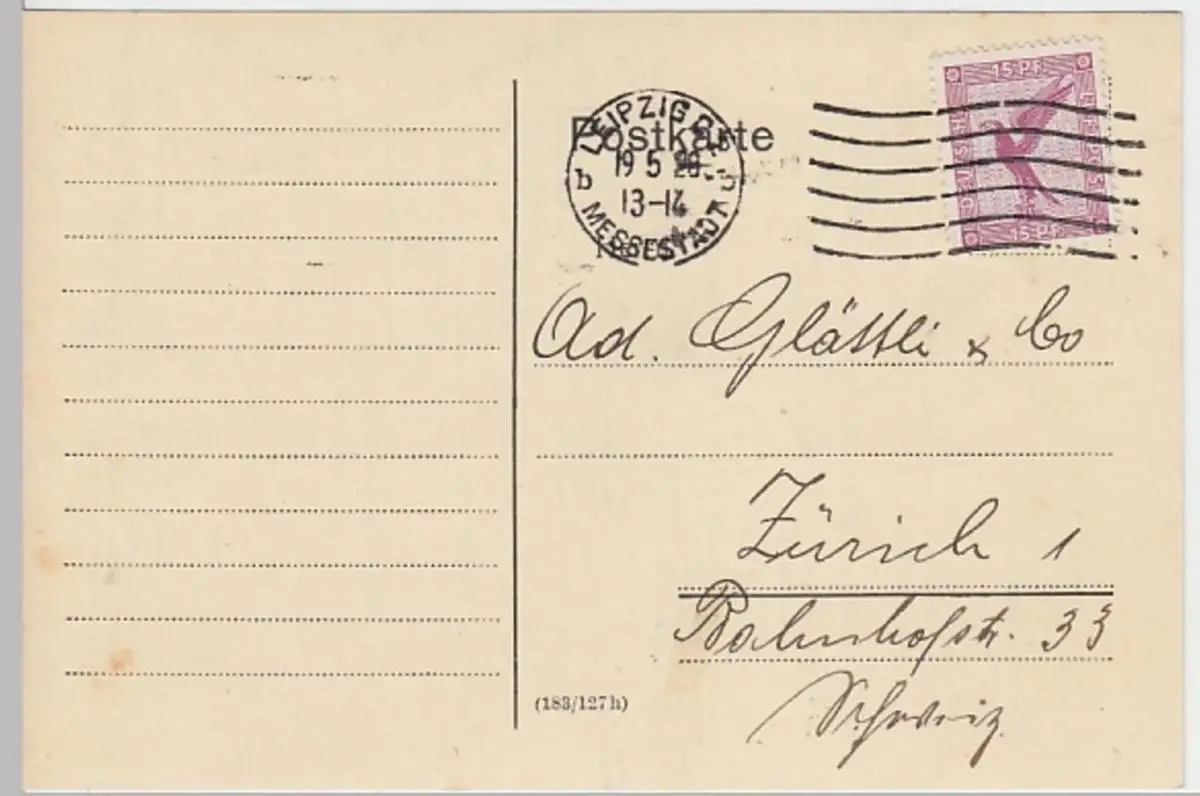 Postkarte
LEIPZIG
19 5
13-14
b b
MESSESTADT
15 PF
15 PF
Ad. Glättli & Co
Zürich 1
Bahnhofstr. 33
Schweiz
(183/127h)